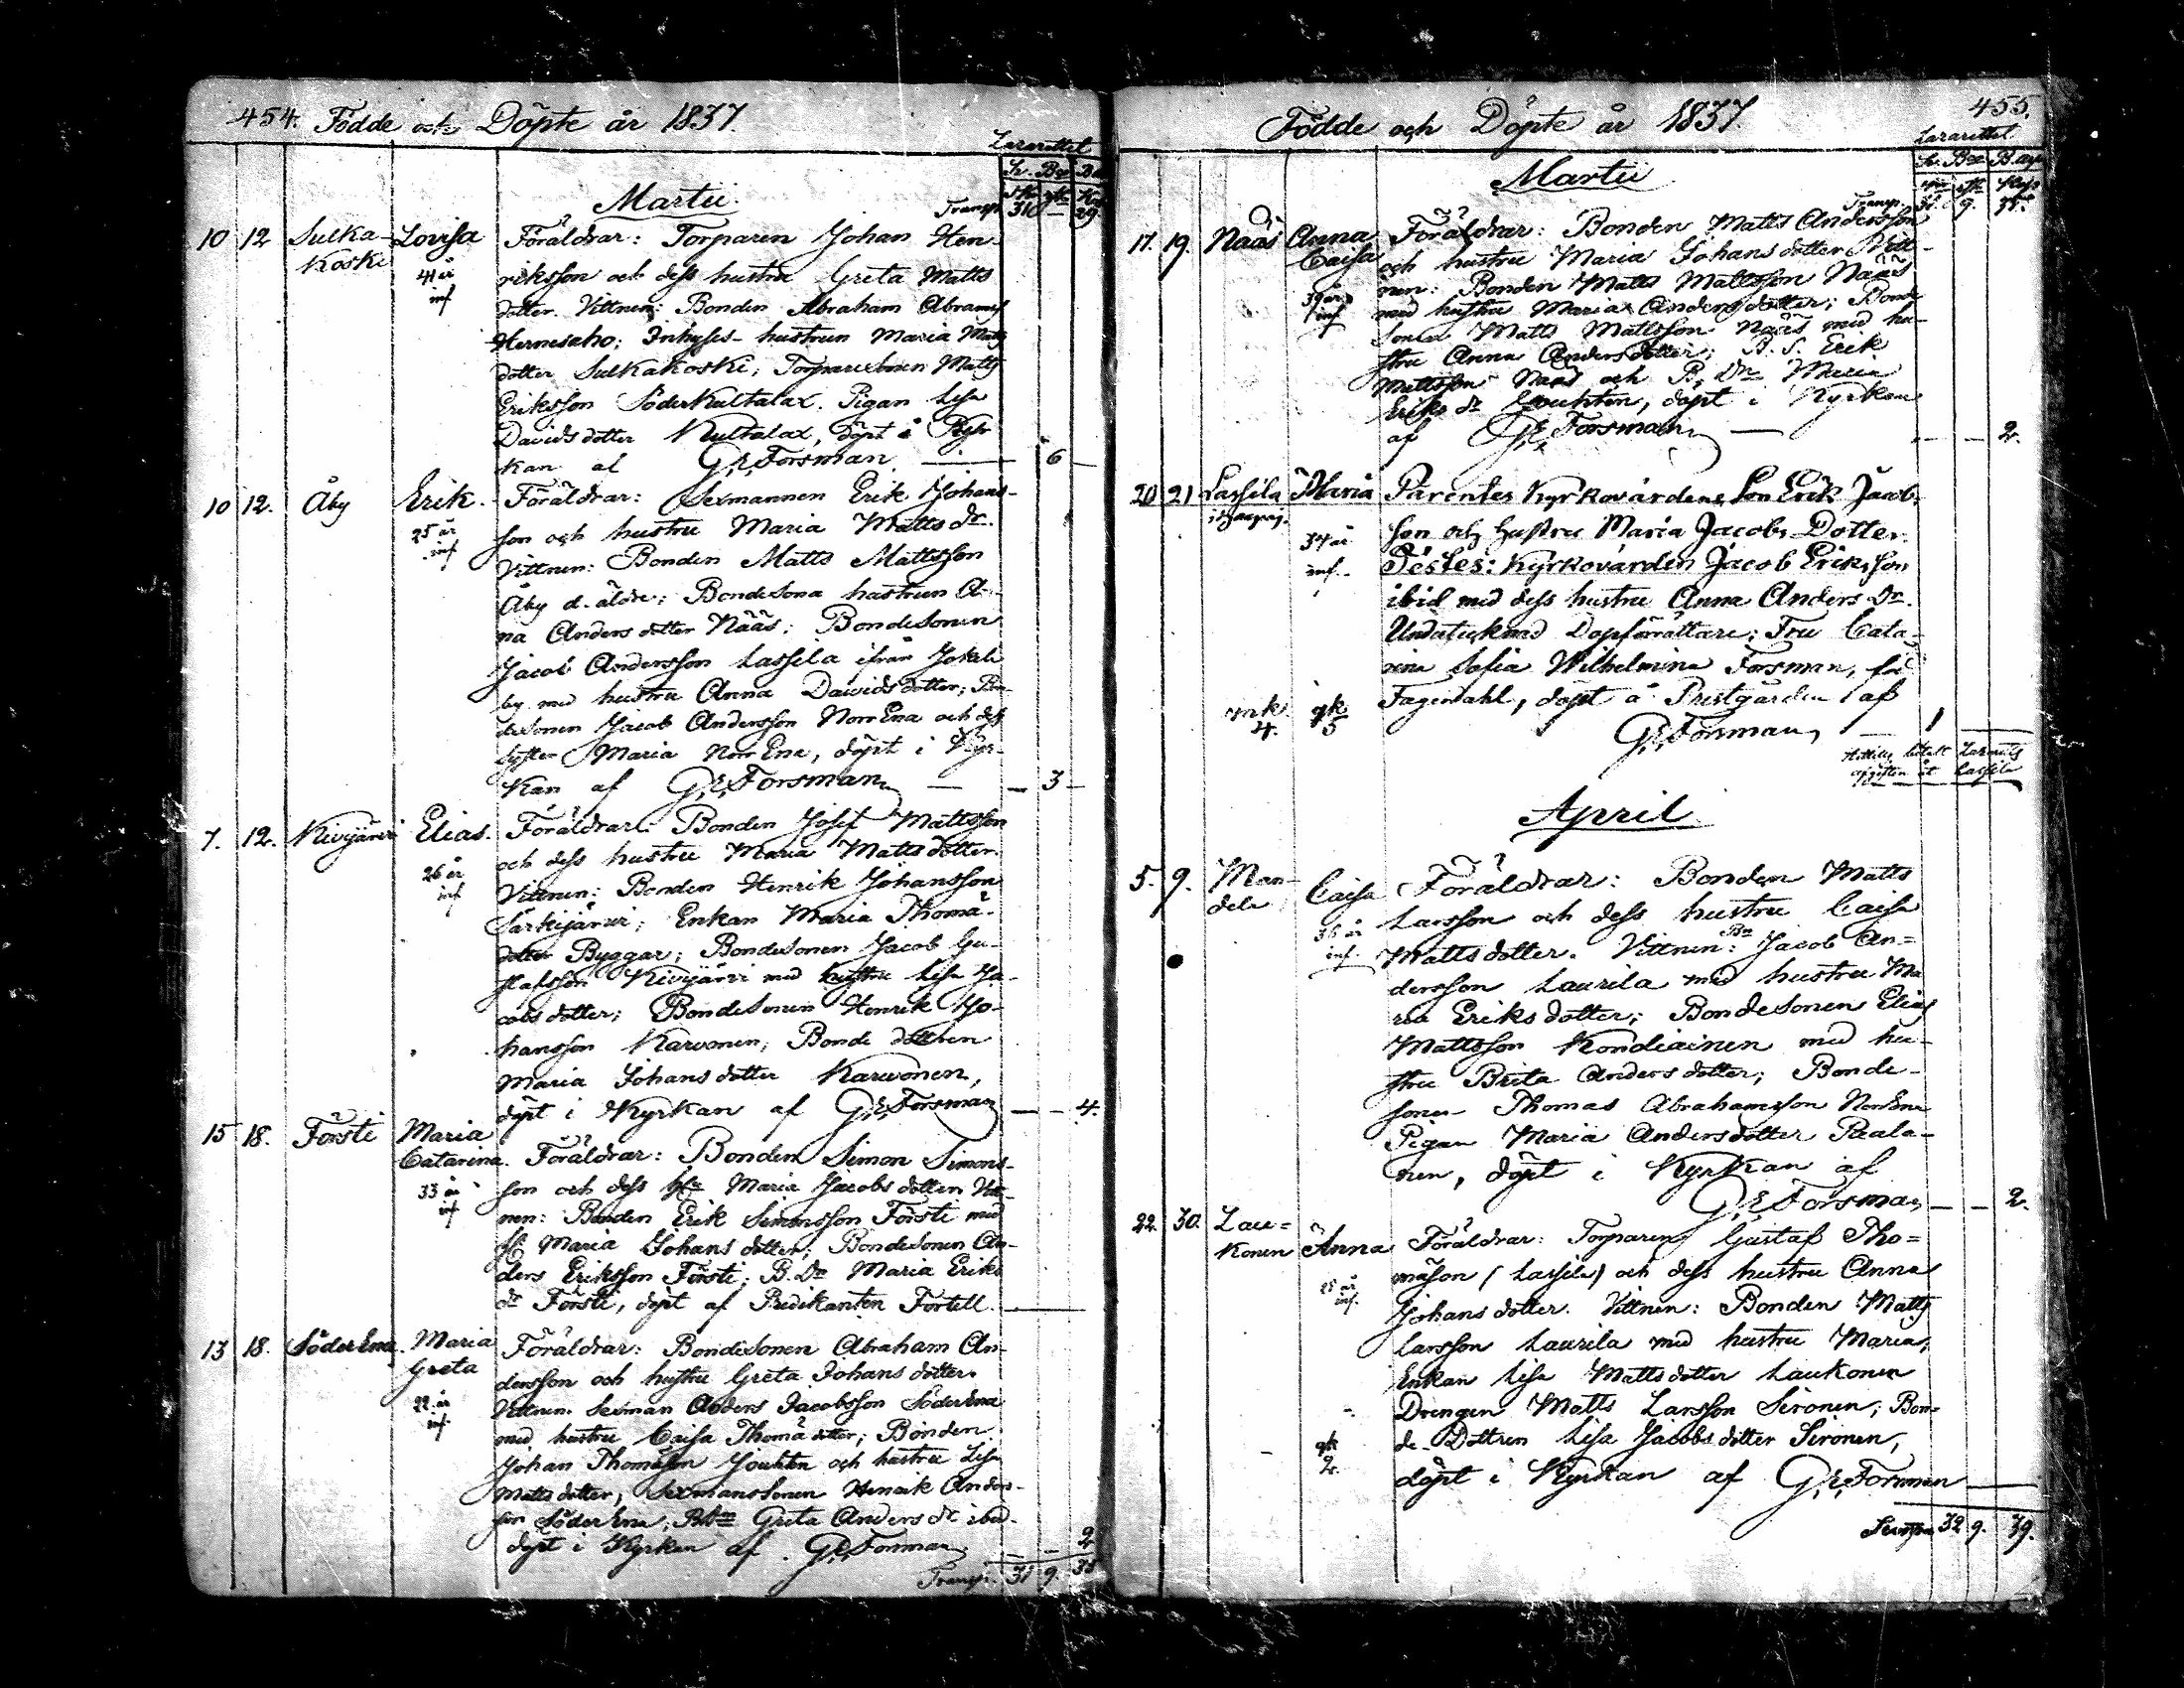 454. Födde och Döpte år 1837.
Lazarettet
Martii.
Transp. 31 29
10 12 Sulka- Lovisa Föräldrar: Torparen Johan Hen-
koski 41 år riksson och dess hustru Greta Matts
inf dotter. Vittnen: Bonden Abraham Abrams
Hernesaho; Inhyses-hustrun Maria Matts
dotter Sulkakoski; Torparesonen Matts
Eriksson Söderkultalax. Pigan Lisa
Davidsdotter Kultalax, döpt i Kyr-
kan af G. E. Forsman — 6 —
10 12. Åby Erik. Föräldrar: Sexmannen Erik Johans-
25 år son och hustru Maria Matts dr.
inf Vittnen: Bonden Matts Mattsson
Åby d. äldre; Bondesona hustrun An-
na Anders dotter Nääs; Bondesonen
Jacob Andersson Lassila ifrån Jokela
by med hustru Anna Davidsdotter; Bon-
desonen Jacob Andersson Norr Ena och dess
syster Maria Norr Ena, döpt i Kyr-
kan af G. E. Forsman — — 3 —
7. 12. Kivijärvi Elias. Föräldrar: Bonden Josef Mattsson
26 år och dess hustru Maria Mattsdotter.
inf Vittnen: Bonden Henrik Johansson
Särkijärvi; Enkan Maria Thomä-
dotter Byggar; Bondesonen Jacob Gu-
stafsson Kivijärvi med hustru Lisa Ja-
cobsdotter; Bondesonen Henrik Jo-
hansson Karvonen; Bonde dottren
Maria Johans dotter Karvonen,
döpt i Kyrkan af G. E. Forsman — — 4.
15 18. Försti Maria
Catarina. Föräldrar: Bonden Simon Simons-
33 år son och dess Maria Jacobs dotter. Vitt-
inf nen: Bonden Erik Simonsson Försti med
Maria Johans dotter; Bondesonen An-
ders Eriksson Försti; B. Dr Maria Eriks
dr Försti, döpt af Predikanten Fortell. —
13 18. Söder Ena. Maria Föräldrar: Bondesonen Abraham An-
Greta dersson och hustru Greta Johans dotter.
22 år Vittnen. Sexman Anders Jacobsson SöderEna
inf. med hustru Caisa Thomä dotter; Bonden
Johan Thomäson Jouhten och hustru Lisa
Matts dotter; Sexmanssonen Henrik Anders-
son Söder Ena, Greta Anders dr ibid.
döpt i Kyrkan af G. E. Forsman — — 2
Transp. 31 9. 35
Födde och Döpte år 1837. 455.
Lazarettet
Martii
Transp. 31. 9. 35.
17. 19. Nääs Anna Föräldrar: Bonden Matts Andersson
Caisa och hustru Maria Johans dotter. Vitt-
39 år nen: Bonden Matts Mattsson Nääs
inf med hustru Maria Andersdotter; Bonde
sonen Matts Mattsson Nääs med hu-
stru Anna Andersdotter; B. S. Erik
Mattsson Nääs och B. Dr Maria
Eriks dr Jouhten, döpt i Kyrkan
af G. E. Forsman — — — 2.
20 21 Lassila Maria Parentes Kyrkovärdens Son Erik Jacob-
34 år son och hustru Maria Jacobs Dotter.
inf. Testes: Kyrkovärden Jacob Eriksson
ibid med dess hustru Anna Anders Dr.
Undertecknad Dopförrättare; Fru Cata-
rina Sofia Wilhelmina Forsman, född
mk. qk Fagerdahl, döpt å Prestgården af
4. 5 G. E. Forsman — 1 —
April.
5. 9. Man- Caisa Föräldrar: Bonden Matts
dela 36 år Larsson och dess hustru Caisa
inf. Mattsdotter. Vittnen: Bn Jacob An=
dersson Laurila med hustru Ma
ria Eriksdotter; Bondesonen Elias
Mattsson Kondiainen med hu-
stru Brita Anders dotter; Bonde-
sonen Thomas Abrahamsson NorrEna
Pigan Maria Andersdotter Paala-
nen, döpt i Kyrkan af
G. E. Forsman — — 2.
22. 30. Lau=
konen Anna Föräldrar: Torparen Gustaf Tho=
25 år mäson (Lassila) och dess hustru Anna
inf. Johans dotter. Vittnen: Bonden Matts
Larsson Laurila med hustru Maria;
Enkan Lisa Matts dotter Laukonen
Drengen Matts Larsson Sironen; Bon=
qk de-Dottren Lisa Jacobs dotter Sironen,
2. döpt i Kyrkan af G. E. Forsman —
Transp. 32 9. 39.